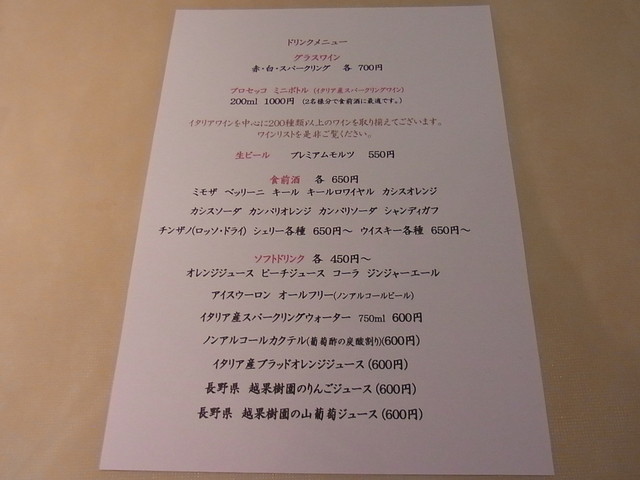 ドリンクメニュー
グラスワイン
赤・白・スパークリング 各 700円
プロセッコ ミニボトル (イタリア産スパークリングワイン)
200ml 1000円 (2名様分で食前酒に最適です。)
イタリアワインを中心に200種類以上のワインを取り揃えてございます。
ワインリストを是非ご覧ください。
生ビール プレミアムモルツ 550円
食前酒 各 650円
ミモザ ベッリーニ キール キールロワイヤル カシスオレンジ
カシスソーダ カンパリオレンジ カンパリソーダ シャンディガフ
チンザノ(ロッソ・ドライ) シェリー各種 650円～ ウイスキー各種 650円～
ソフトドリンク 各 450円～
オレンジジュース ピーチジュース コーラ ジンジャーエール
アイスウーロン オールフリー(ノンアルコールビール)
イタリア産スパークリングウォーター 750ml 600円
ノンアルコールカクテル(葡萄酢の炭酸割り)(600円)
イタリア産ブラッドオレンジジュース(600円)
長野県 越果樹園のりんごジュース(600円)
長野県 越果樹園の山葡萄ジュース(600円)